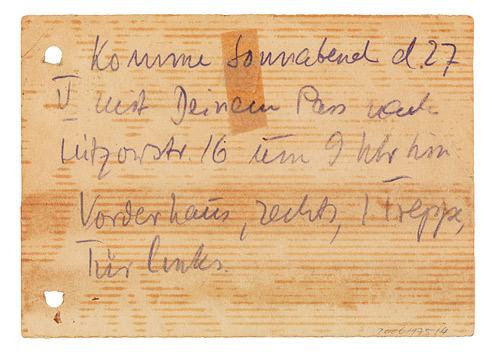 Komme Sonnabend d. 27
V mit Deinem Pass nach
Lützowstr. 16 um 9 Uhr hin
Vorderhaus, rechts, 1 Treppe,
Tür links.